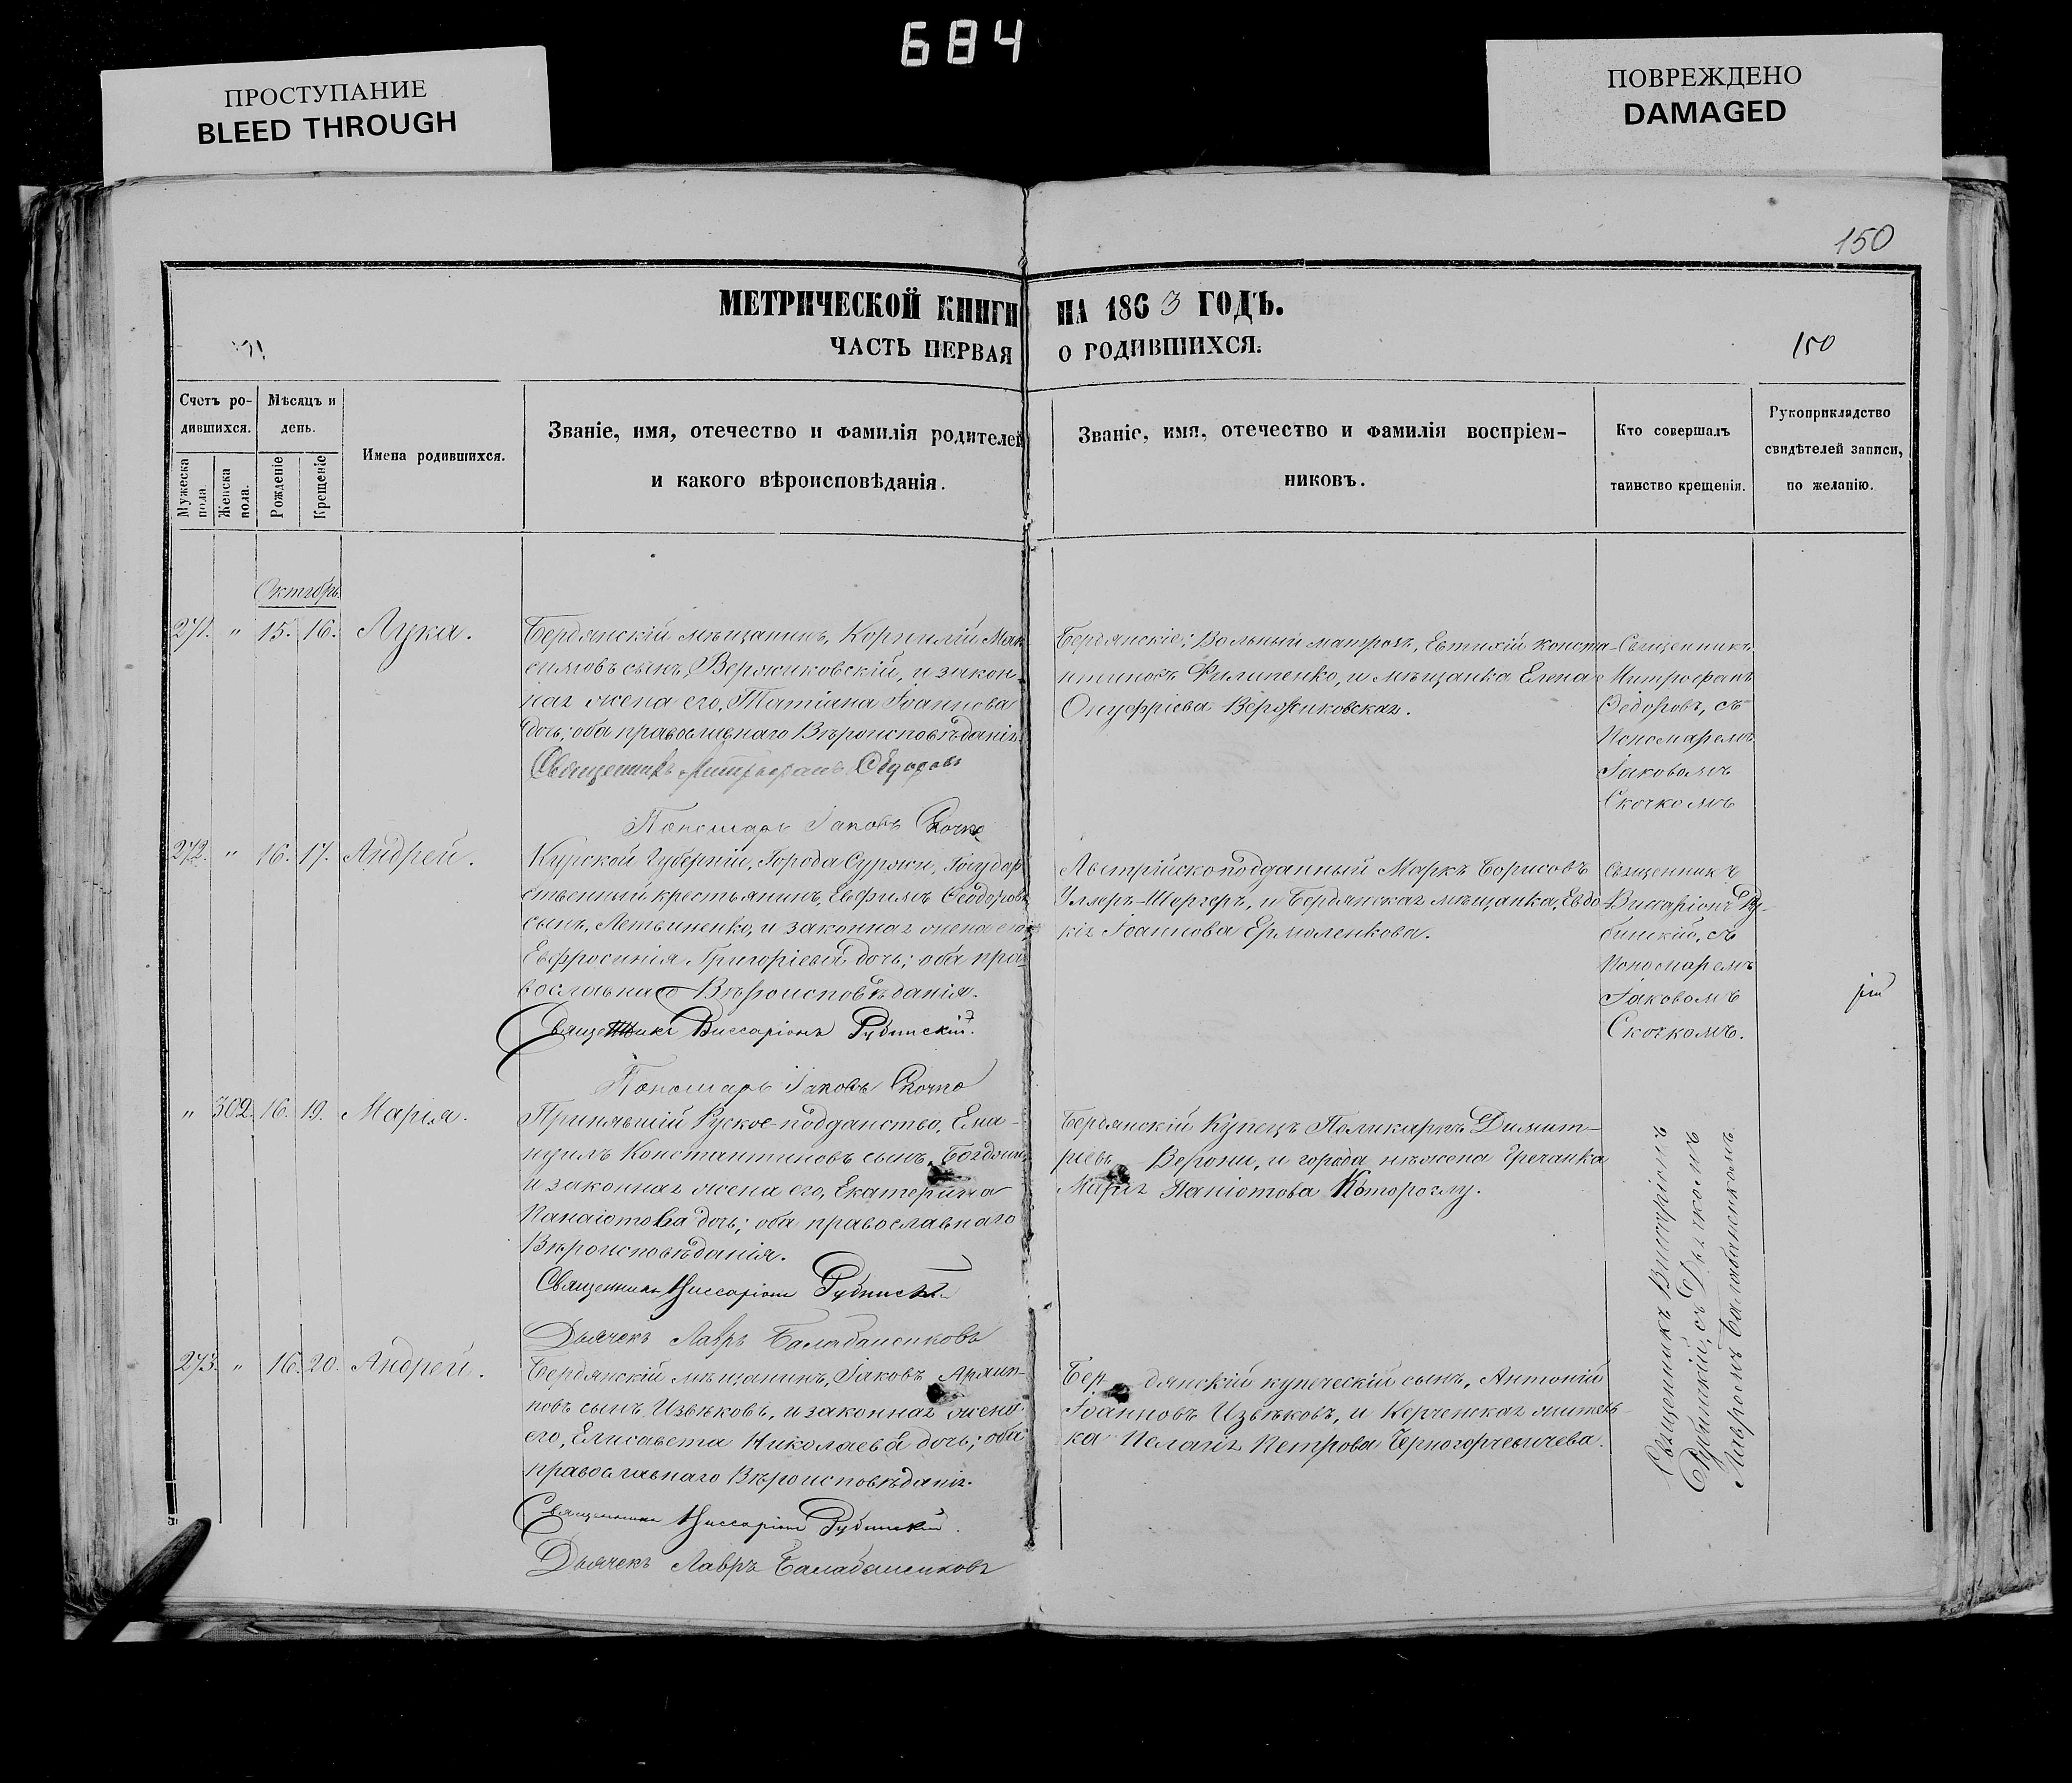 684
ПРОСТУПАНИЕ
BLEED THROUGH
ПОВРЕЖДЕНО
DAMAGED
150
МЕТРИЧЕСКОЙ КНИГИ НА 1863 ГОДЪ.
ЧАСТЬ ПЕРВАЯ О РОДИВШИХСЯ.
150
Счетъ ро-
дившихся.
Мужеска пола
Женска пола.
Мѣсяцъ и
день.
Рожденіе
Крещеніе
Имена родившихся.
Званіе, имя, отечество и фамилія родителей
и какого вѣроисповѣданія.
Званіе, имя, отечество и фамилія воспріем-
никовъ.
Кто совершалъ
таинство крещенія.
Рукоприкладство
свидѣтелей записи,
по желанію.
Октябрь
271. " 15. 16. Лука.
Бердянскій мѣщанинъ, Корнилій Мак
симовъ сынъ, Вержиковскій, и закон-
ная жена его, Татіана Іоаннова
дочь; оба православнаго Вѣроисповѣданія.
Священникъ Митрофанъ Ѳедоровъ
Пономарь Іаковъ Скочко
Бердянскіе: Вольный матрозъ, Евтихій Конста-
нтиновъ Филипенко, и мѣщанка Елена
Онуфріева Вержиковская.
Священникъ
Митрофанъ
Ѳедоровъ, съ
Пономаремъ
Іаковомъ
Скочкомъ
272. " 16. 17. Андрей.
Курской Губерніи, Города Суржи, Государ
ственный крестьянинъ, Евфимъ Ѳеодоровъ
сынъ, Летвиненко, и законная жена его,
Евфросинія Григоріева дочь; оба пра-
вославнаго Вѣроисповѣданія.
Священникъ Виссаріонъ Рубинскій.
Пономарь Іаковъ Скочко
Австрійскоподданный Маркъ Борисовъ
Уллеръ-Шергеръ, и Бердянская мѣщанка, Евдо-
кія Іоаннова Ермоленкова.
Священникъ
Виссаріонъ Ру-
бинскій, съ
Пономаремъ
Іаковомъ
Скочкомъ.
" 302. 16. 19. Марія.
Принявшій Руское-подданство, Ема-
нуилъ Константиновъ сынъ,
и законная жена его, Екатерина
Панаіотова дочь; оба православнаго
Вѣроисповѣданія.
Священникъ Виссаріонъ Рубинскій
Дьячекъ Лавръ Балабаненковъ
Бердянскій Купецъ Поликарпъ Димит-
ріевъ Верони, и города нѣжена Гречанка
Марія Паніотова Котороглу.
273. " 16. 20. Андрей.
Бердянскій мѣщанинъ, Іаковъ
новъ сынъ Извѣковъ, и законная жена
его, Елисавета Николаева дочь; оба
православнаго Вѣроисповѣданія.
Священникъ Виссаріонъ Рубинскій.
Дьячекъ Лавръ Балабаненковъ
Бердянскій купеческій сынъ, Антоній
Іоанновъ Извѣковъ, и Керченская житель-
ка Пелагія Петрова Черногорчевичева.
Священникъ Виссаріонъ
Рубинскій, съ Дьячкомъ
Лавромъ Балабаненкомъ